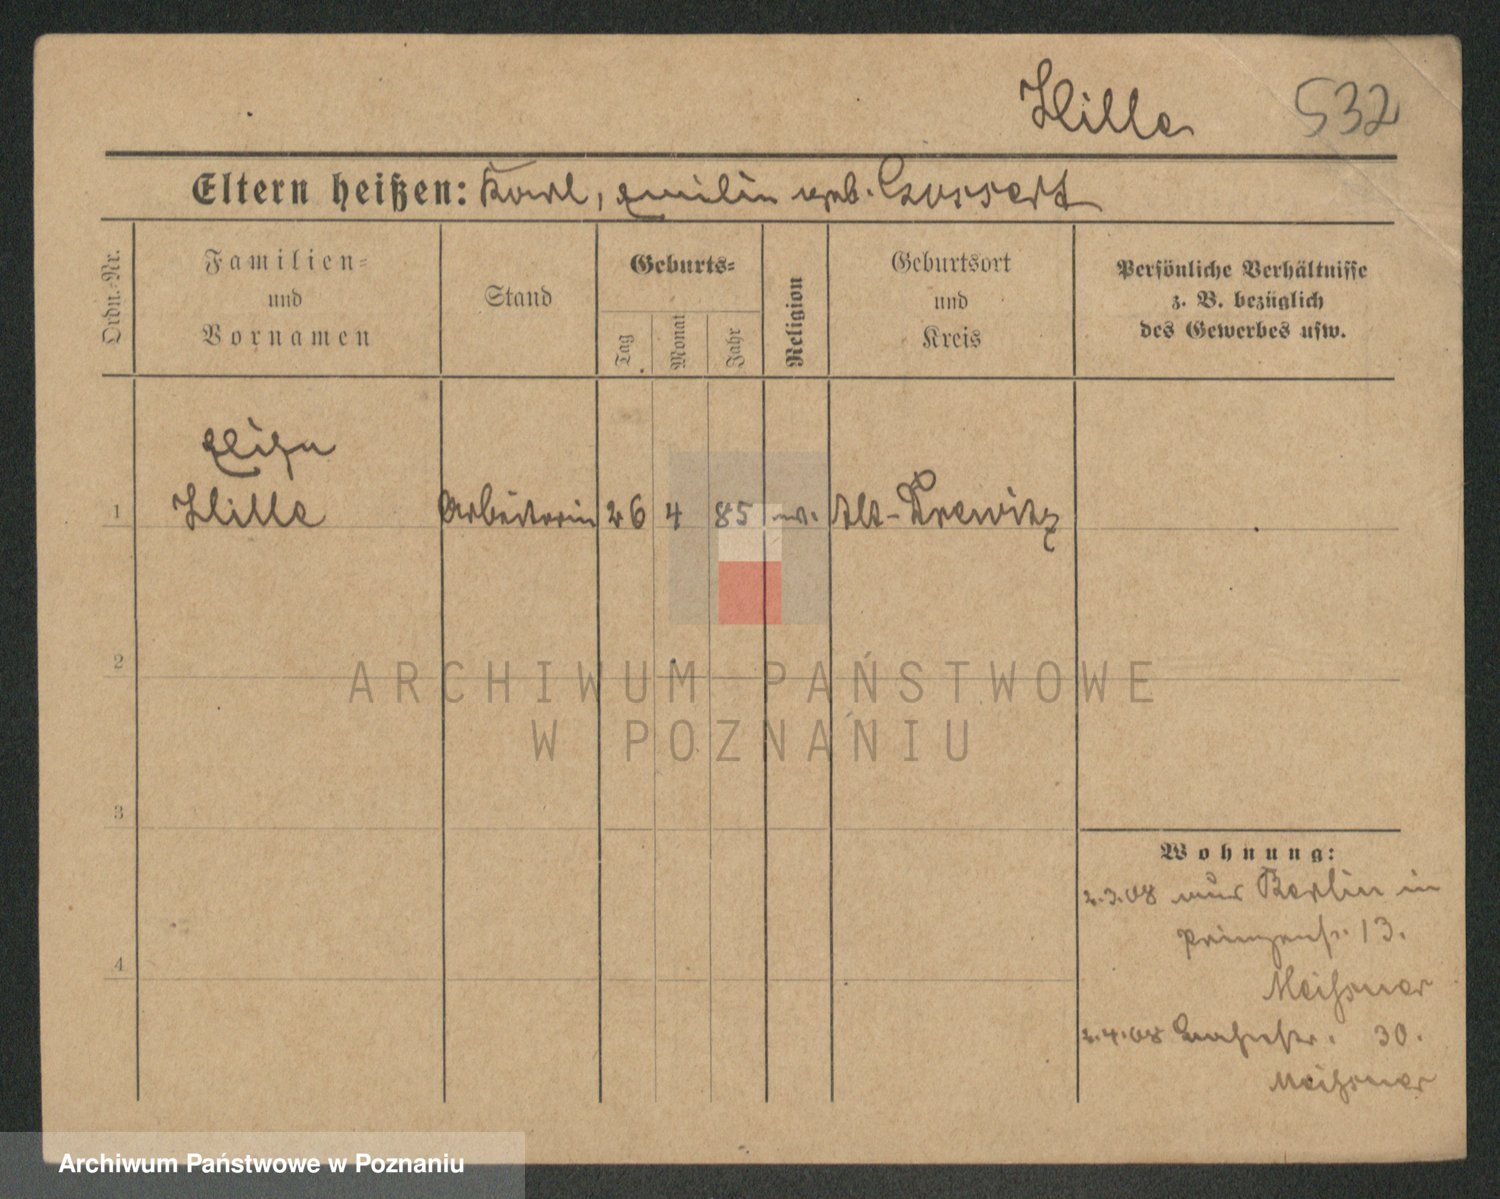 Hille 532
Eltern heißen: Karl, Emilie geb. Gossert
Ordn.-Nr.
Familien-
und
Vornamen
Stand
Geburts-
Tag
Monat
Jahr
Religion
Geburtsort
und
Kreis
Persönliche Verhältnisse
z. B. bezüglich
des Gewerbes usw.
1
Hille Arbeiterin 26 4 85 Alt-Drewitz
2
ARCHIWUM PAŃSTWOWE
W POZNANIU
3
Wohnung:
2.3.08 aus Berlin in
Prinzenstr. 13.
Meißner
4
2.4.08 30.
Meißner
Archiwum Państwowe w Poznaniu